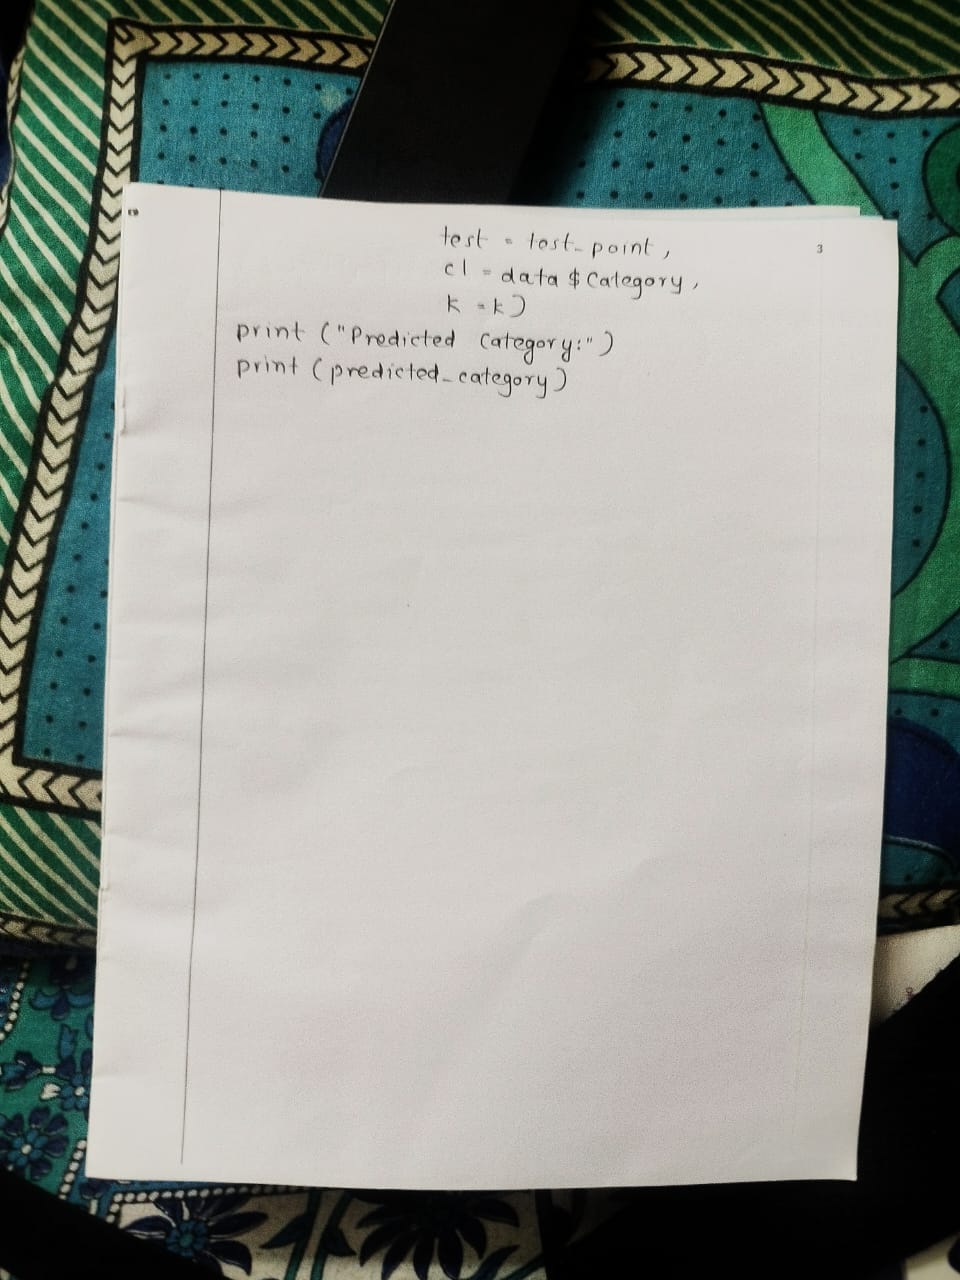 3
test = test_point,
cl = data $ Category,
k = k)
print ("Predicted Category:")
print (predicted_category)